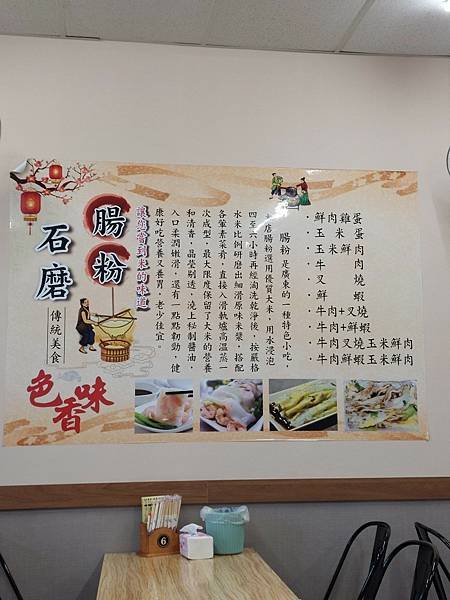 石磨
腸粉
傳統美食
色香味
讓您嘗到家的味道
腸粉是廣東的一種特色小吃，
本店腸粉選用優質大米，用水浸泡
四至六小時再經淘洗乾淨後，按嚴格
水米比例研磨出細滑原味米漿，搭配
各葷素菜肴，直接入滑軌爐高溫蒸一
次成型，最大限度保留了大米的營養
和清香，晶瑩剔透，澆上秘制醬油，
入口柔潤嫩滑，還有一點點韌勁，健
康好吃營養又養胃，老少佳宜。
・鮮肉雞蛋
・玉米蛋
・玉米鮮肉
・牛肉
・叉燒
・鮮蝦
・牛肉+叉燒
・牛肉+鮮蝦
・牛肉叉燒玉米鮮肉
・牛肉鮮蝦玉米鮮肉
6